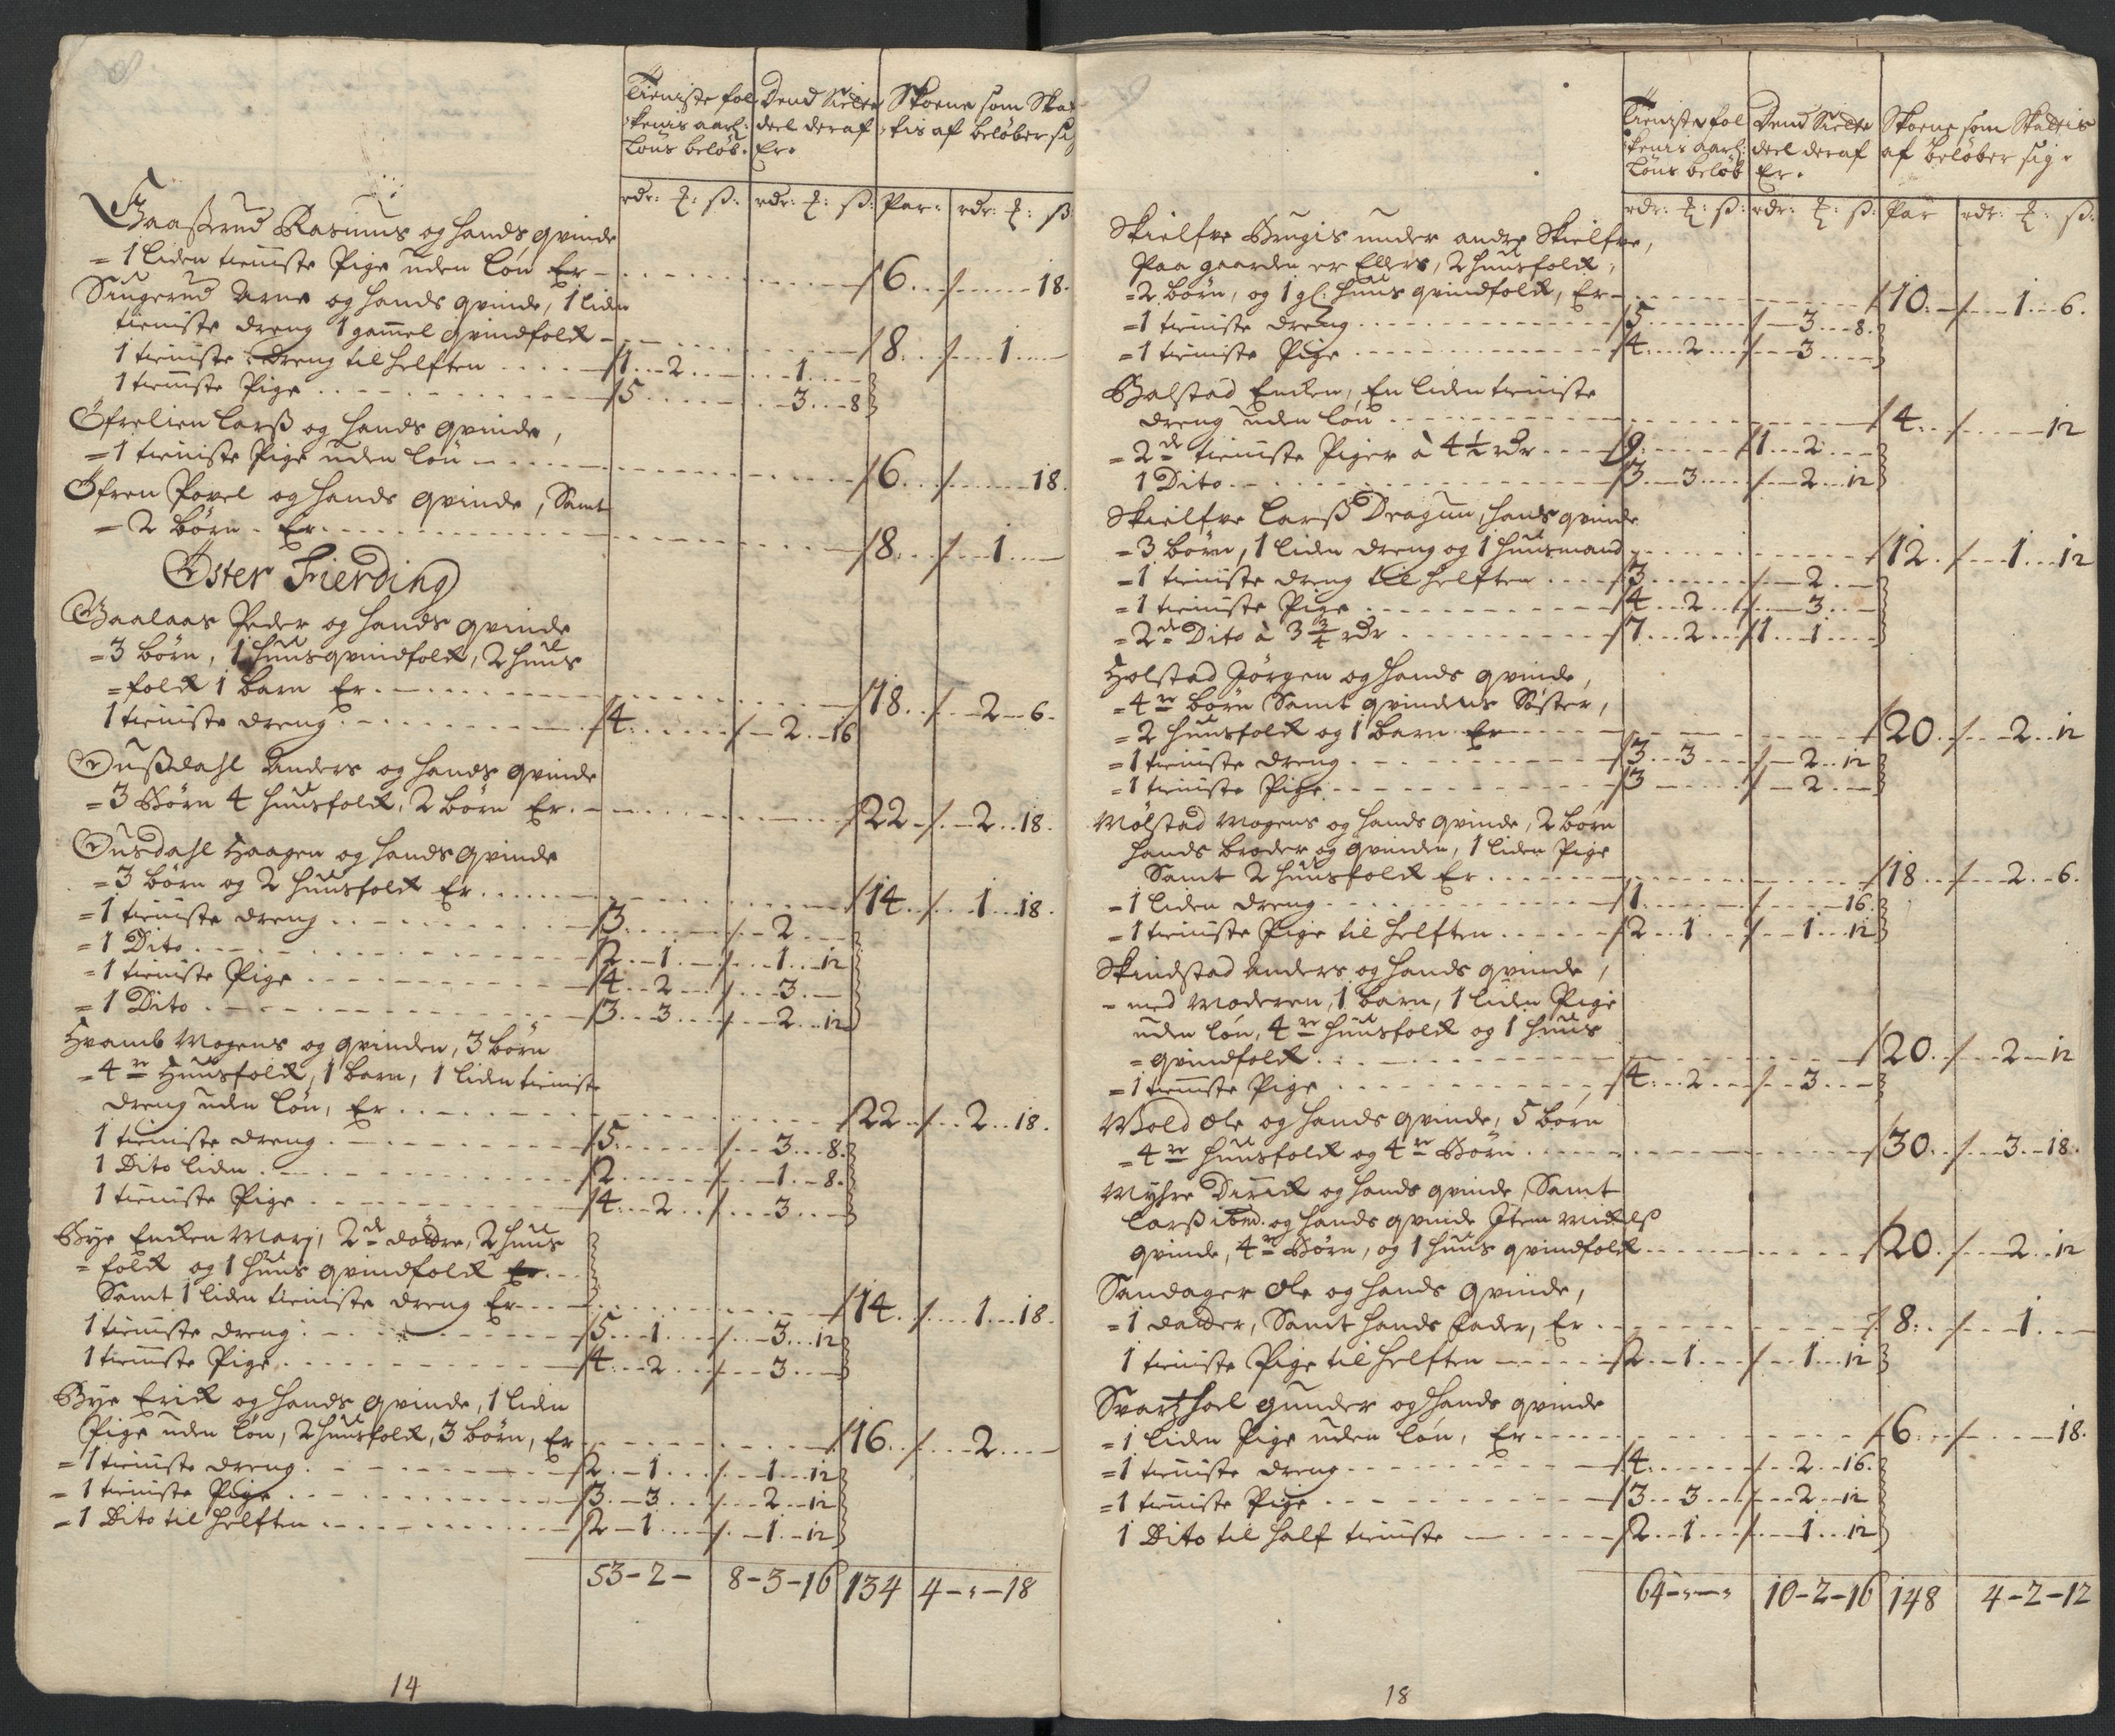 Tieniste fol Dend Siette Skoene som Skat
kenis aarl: deel deraf tis af beløber sig
Løns beløb. Er.
rdr: ƺ: ß: rdr: ƺ: ß: Par: rdr: ƺ: ß:
Gaaserud Rasmus og hands qvinde
= 1 liden tieniste Pige uden løn Er 6 18.
Singerud Arne og hands qvinde, 1 liden
tieniste dreng 1 gamel qvindfolk 8 1
1 tieniste dreng til helften 1 2 1
1 tieniste Pige 5 3 8
Øfrelien Larß og hands qvinde,
= 1 tieniste Pige uden løn 6 18.
Øfren Povel og hands qvinde, Samt
= 2 børn. Er 8 1
Öster Fierding
Gaalaas Peder og hands qvinde
= 3 børn, 1 huusqvindfolk, 2 huus
= folk 1 barn Er 18 2 6.
1 tieniste dreng 4 2 16
Dußdahl Anders og hands qvinde
= 3 Børn 4 huusfolk, 2 børn Er. 22 2 18.
Dusdahl Haagen og hands qvinde
= 3 børn og 2 huusfolk Er 14 1 18.
= 1 tieniste dreng 3 2
= 1 Dito 2 1 1 12
= 1 tieniste Pige 4 2 3
= 1 Dito 3 3 2 12
Hvamb Mogens og qvinden, 3 børn
= 4re Huusfolk, 1 barn, 1 liden tieniste
dreng uden løn, Er 22 2 18.
1 tieniste dreng 5 3 8.
1 Dito liden 2 1 8.
1 tieniste Pige 4 2 3
Bye Enken Mari, 2de døttre, 2 huus
= folk og 1 huus qvindfolk
Samt 1 liden tieniste dreng Er 14 1 18.
1 tieniste dreng 5 1 3 12
1 tieniste Pige 4 2 3
Bye Erick og hands qvinde, 1 liden
Pige uden løn, 2 huusfolk, 3 børn, Er 16 2
= 1 tieniste dreng 2 1 1 12
= 1 tieniste Pige 3 3 2 12
= 1 Dito til helften 2 1 1 12
53-2- 8-3-16 134 4-"-18
14
Tieniste fol Dend Siette Skoene som Skattis
kenis aarl: deel deraf af beløber sig.
Løns beløb Er.
rdr: ƺ: ß: rdr: ƺ: ß: Par rdr: ƺ: ß:
Skielfve Brugis under andre Skielfve,
Paa gaarden er Ellers, 2 huusfolk,
= 2 børn, og 1 gl: huus qvindfolk, Er 10 1 6.
= 1 tieniste dreng 5 3 8.
= 1 tieniste Pige 4 2 3
Balstad Enken, En liden tieniste
dreng uden løn 4 12
= 2de tieniste Piger à 4½ rdr 9 1 2
1 Dito 3 3 2 12
Skielfve Larß Dragun, hands qvinde
= 3 børn, 1 liden dreng og 1 huusmand 12 1 12
= 1 tieniste dreng til helften 3 2
= 1 tieniste Pige 4 2 3
= 2de Dito à 3¾ rdr 7 2 1 1
Holstad Jörgen og hands qvinde,
= 4re børn Samt qvindens Søster,
= 2 huusfolk og 1 barn Er 20 2 12
= 1 tieniste dreng 3 3 2 12
= 1 tieniste Pige 3 2
Mølstad Mogens og hands qvinde, 2 børn
hands broder og qvinden, 1 liden Pige
Samt 2 huusfolk Er 18 2 6.
= 1 liden dreng 1 16.
= 1 tieniste Pige til helften 2 1 1 12
Skindstad Anders og hands qvinde,
= med moderen, 1 barn, 1 liden Pige
uden løn, 4re huusfolk og 1 huus
= qvindfolk 20 2 12
= 1 tieniste Pige 4 2 3
Wold Ole og hands qvinde, 5 børn
= 4re huusfolk og 4re Børn 30 3 18.
Myhre Dirick og hands qvinde, Samt
Larß ibid. og hands qvinde Item Mickelß
qvinde, 4re Børn, og 1 huus qvindfolk 20 2 12
Sandager Ole og hands qvinde,
= 1 dotter, Samt hands fader, Er 8 1
1 tieniste Pige til helften 2 1 1 12
Svartshoel Gunder og hands qvinde
= 1 liden Pige uden løn, Er 6 18.
= 1 tieniste dreng 4 2 16.
= 1 tieniste Pige 3 3 2 12
1 Dito til half tieniste 2 1 1 12
64-"-" 10-2-16 148 4-2-12
18